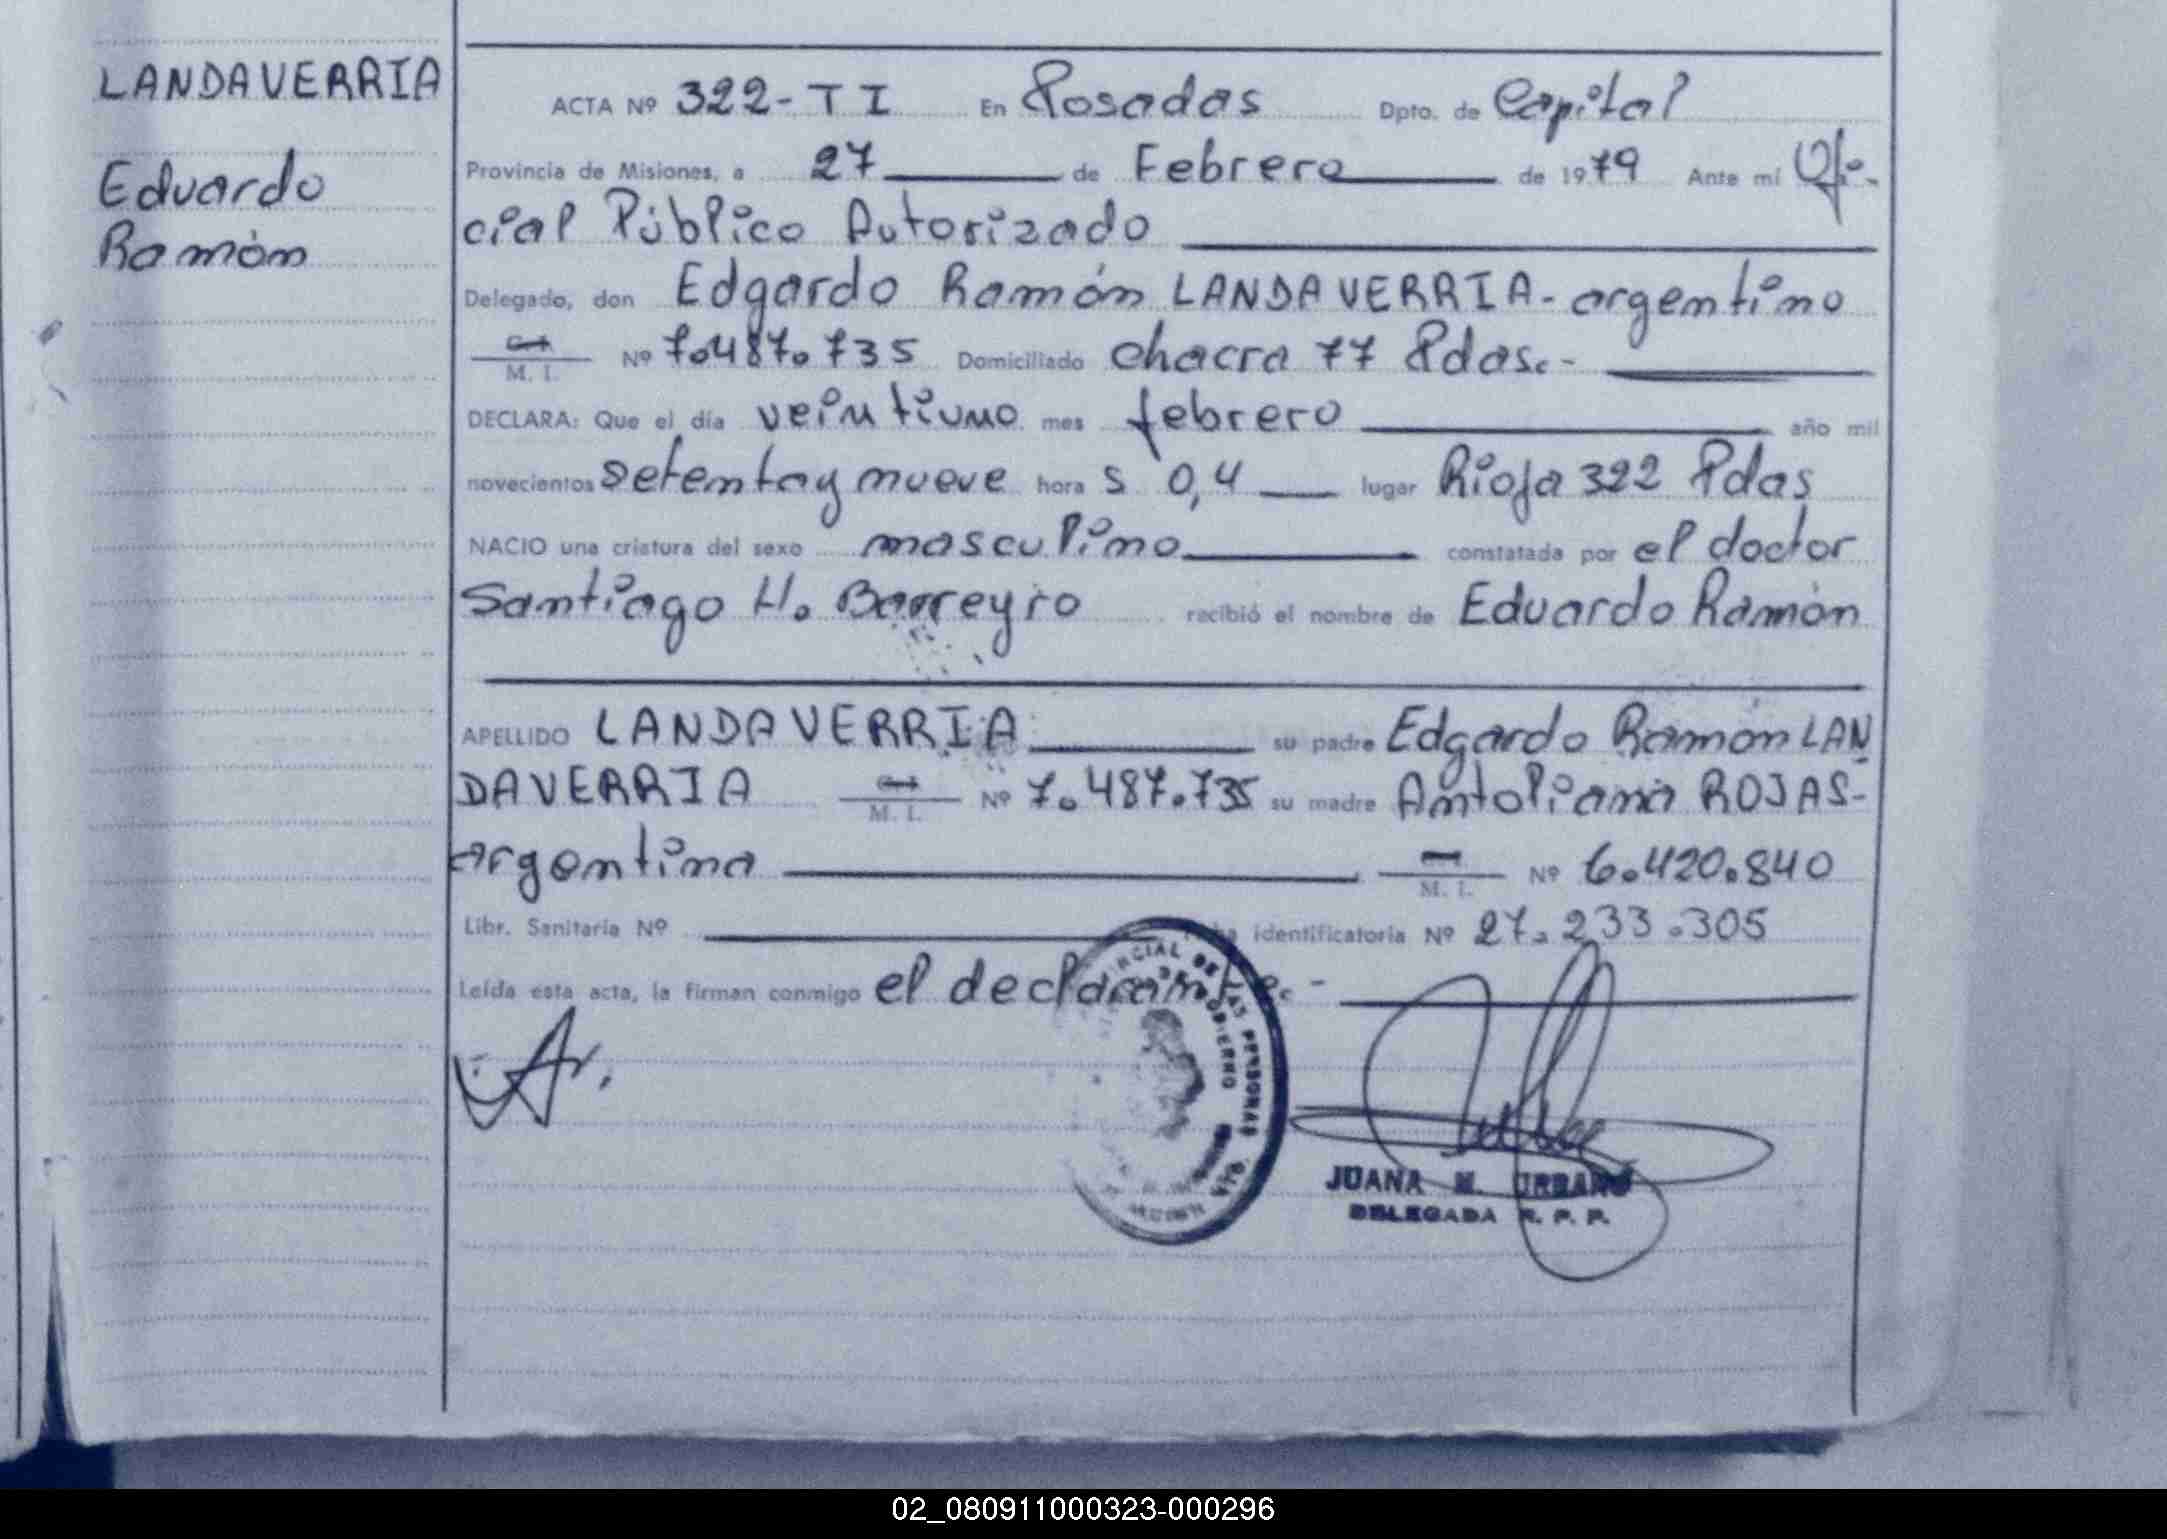 LANDAVERRIA
Eduardo
Ramón
ACTA Nº 322-TI En Posadas Dpto. de Capital
Provincia de Misiones, a 27 de Febrero de 1979 Ante mí Ofi-
cial Público Autorizado
Delegado, don Edgardo Ramón LANDAVERRIA- argentino
M. I. Nº 7.487.735 Domiciliado chacra 77 Pdas.-
DECLARA: Que el día veintiuno mes febrero año mil
novecientos setentay nueve hora s 0,4 lugar Rioja 322 Pdas
NACIO una criatura del sexo masculino constatada por el doctor
Santiago H. Barreyro recibió el nombre de Eduardo Ramón
APELLIDO LANDAVERRIA su padre Edgardo Ramón LAN
DAVERRIA M. I. Nº 7.487.735 su madre Antoliana ROJAS-
argentina M. I. Nº 6.420.840
Libr. Sanitaria Nº identificatoria Nº 27.233.305
Leída esta acta, la firman conmigo el declarante.-
DE LAS PERSONAS
JUANA M. URBANO
DELEGADA R. P. P.
02_080911000323-000296